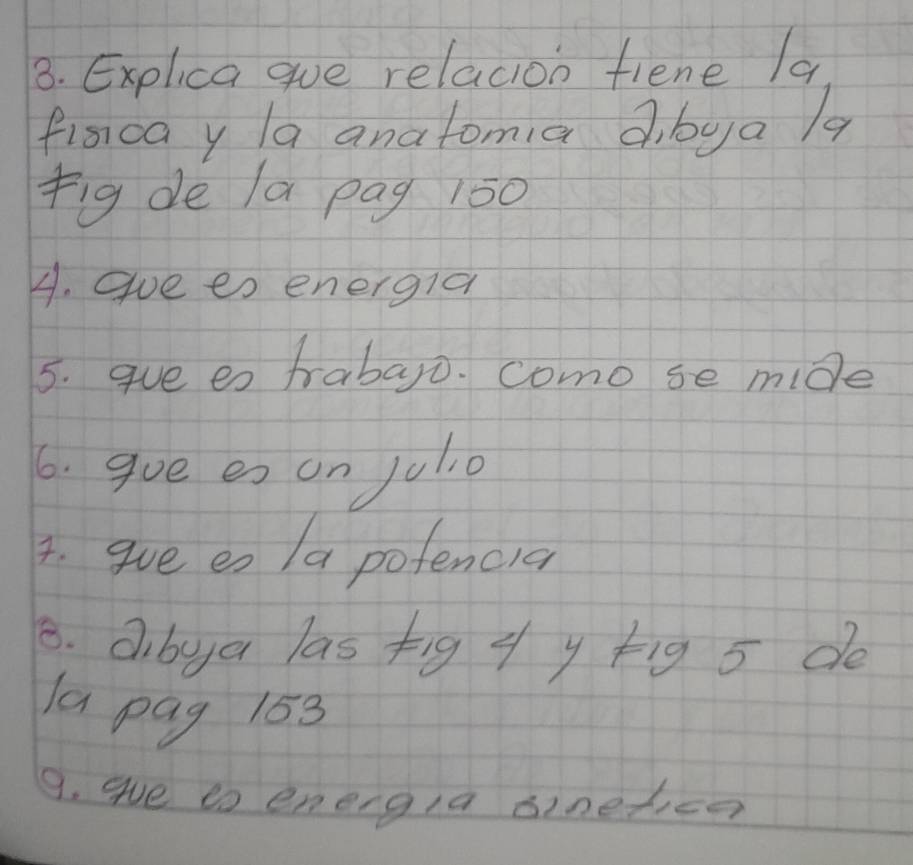 3. Explica que relación tiene la
fisica y la anatomia dibuja la
Fig de la pag 150
4. que es energia
5. que es trabajo. como se mide
6. que es un julio
7. que es la potencia
8. dibuja las fig 4 y fig 5 de
la pag 153
9. que es energia sinetica